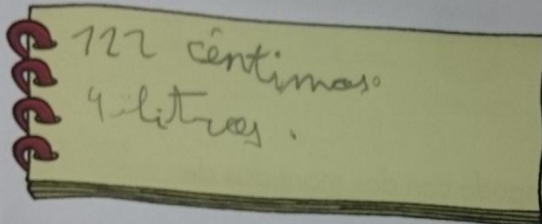 122 céntimos.
4 litros.